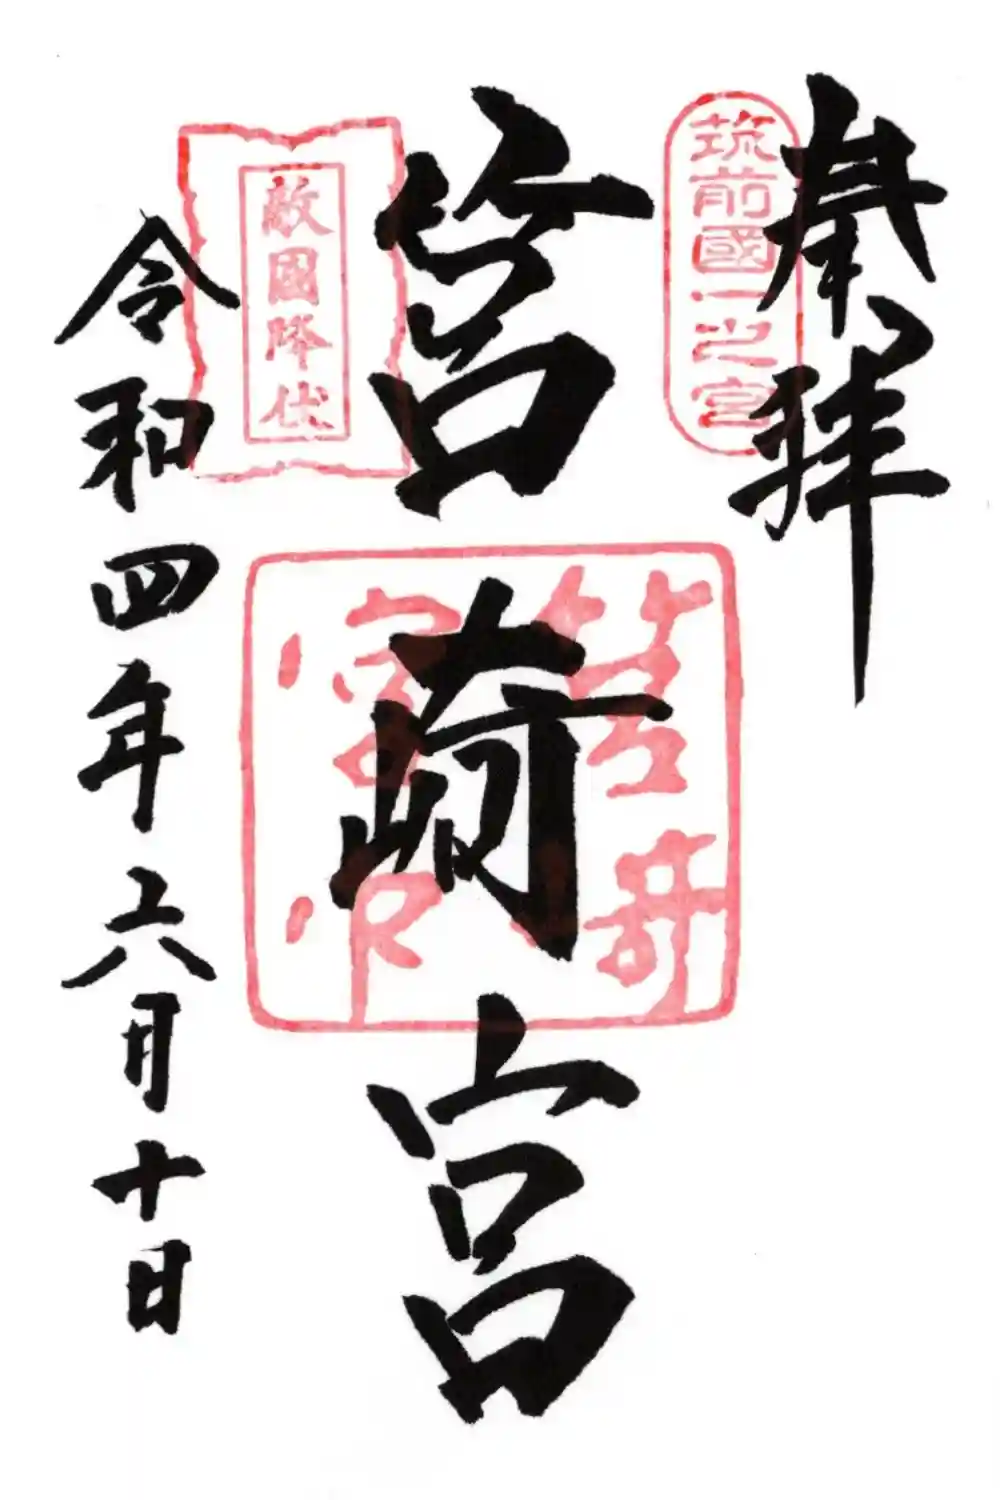 奉拝
筑前國一之宮
筥崎宮
敵國降伏
令和四年六月十日